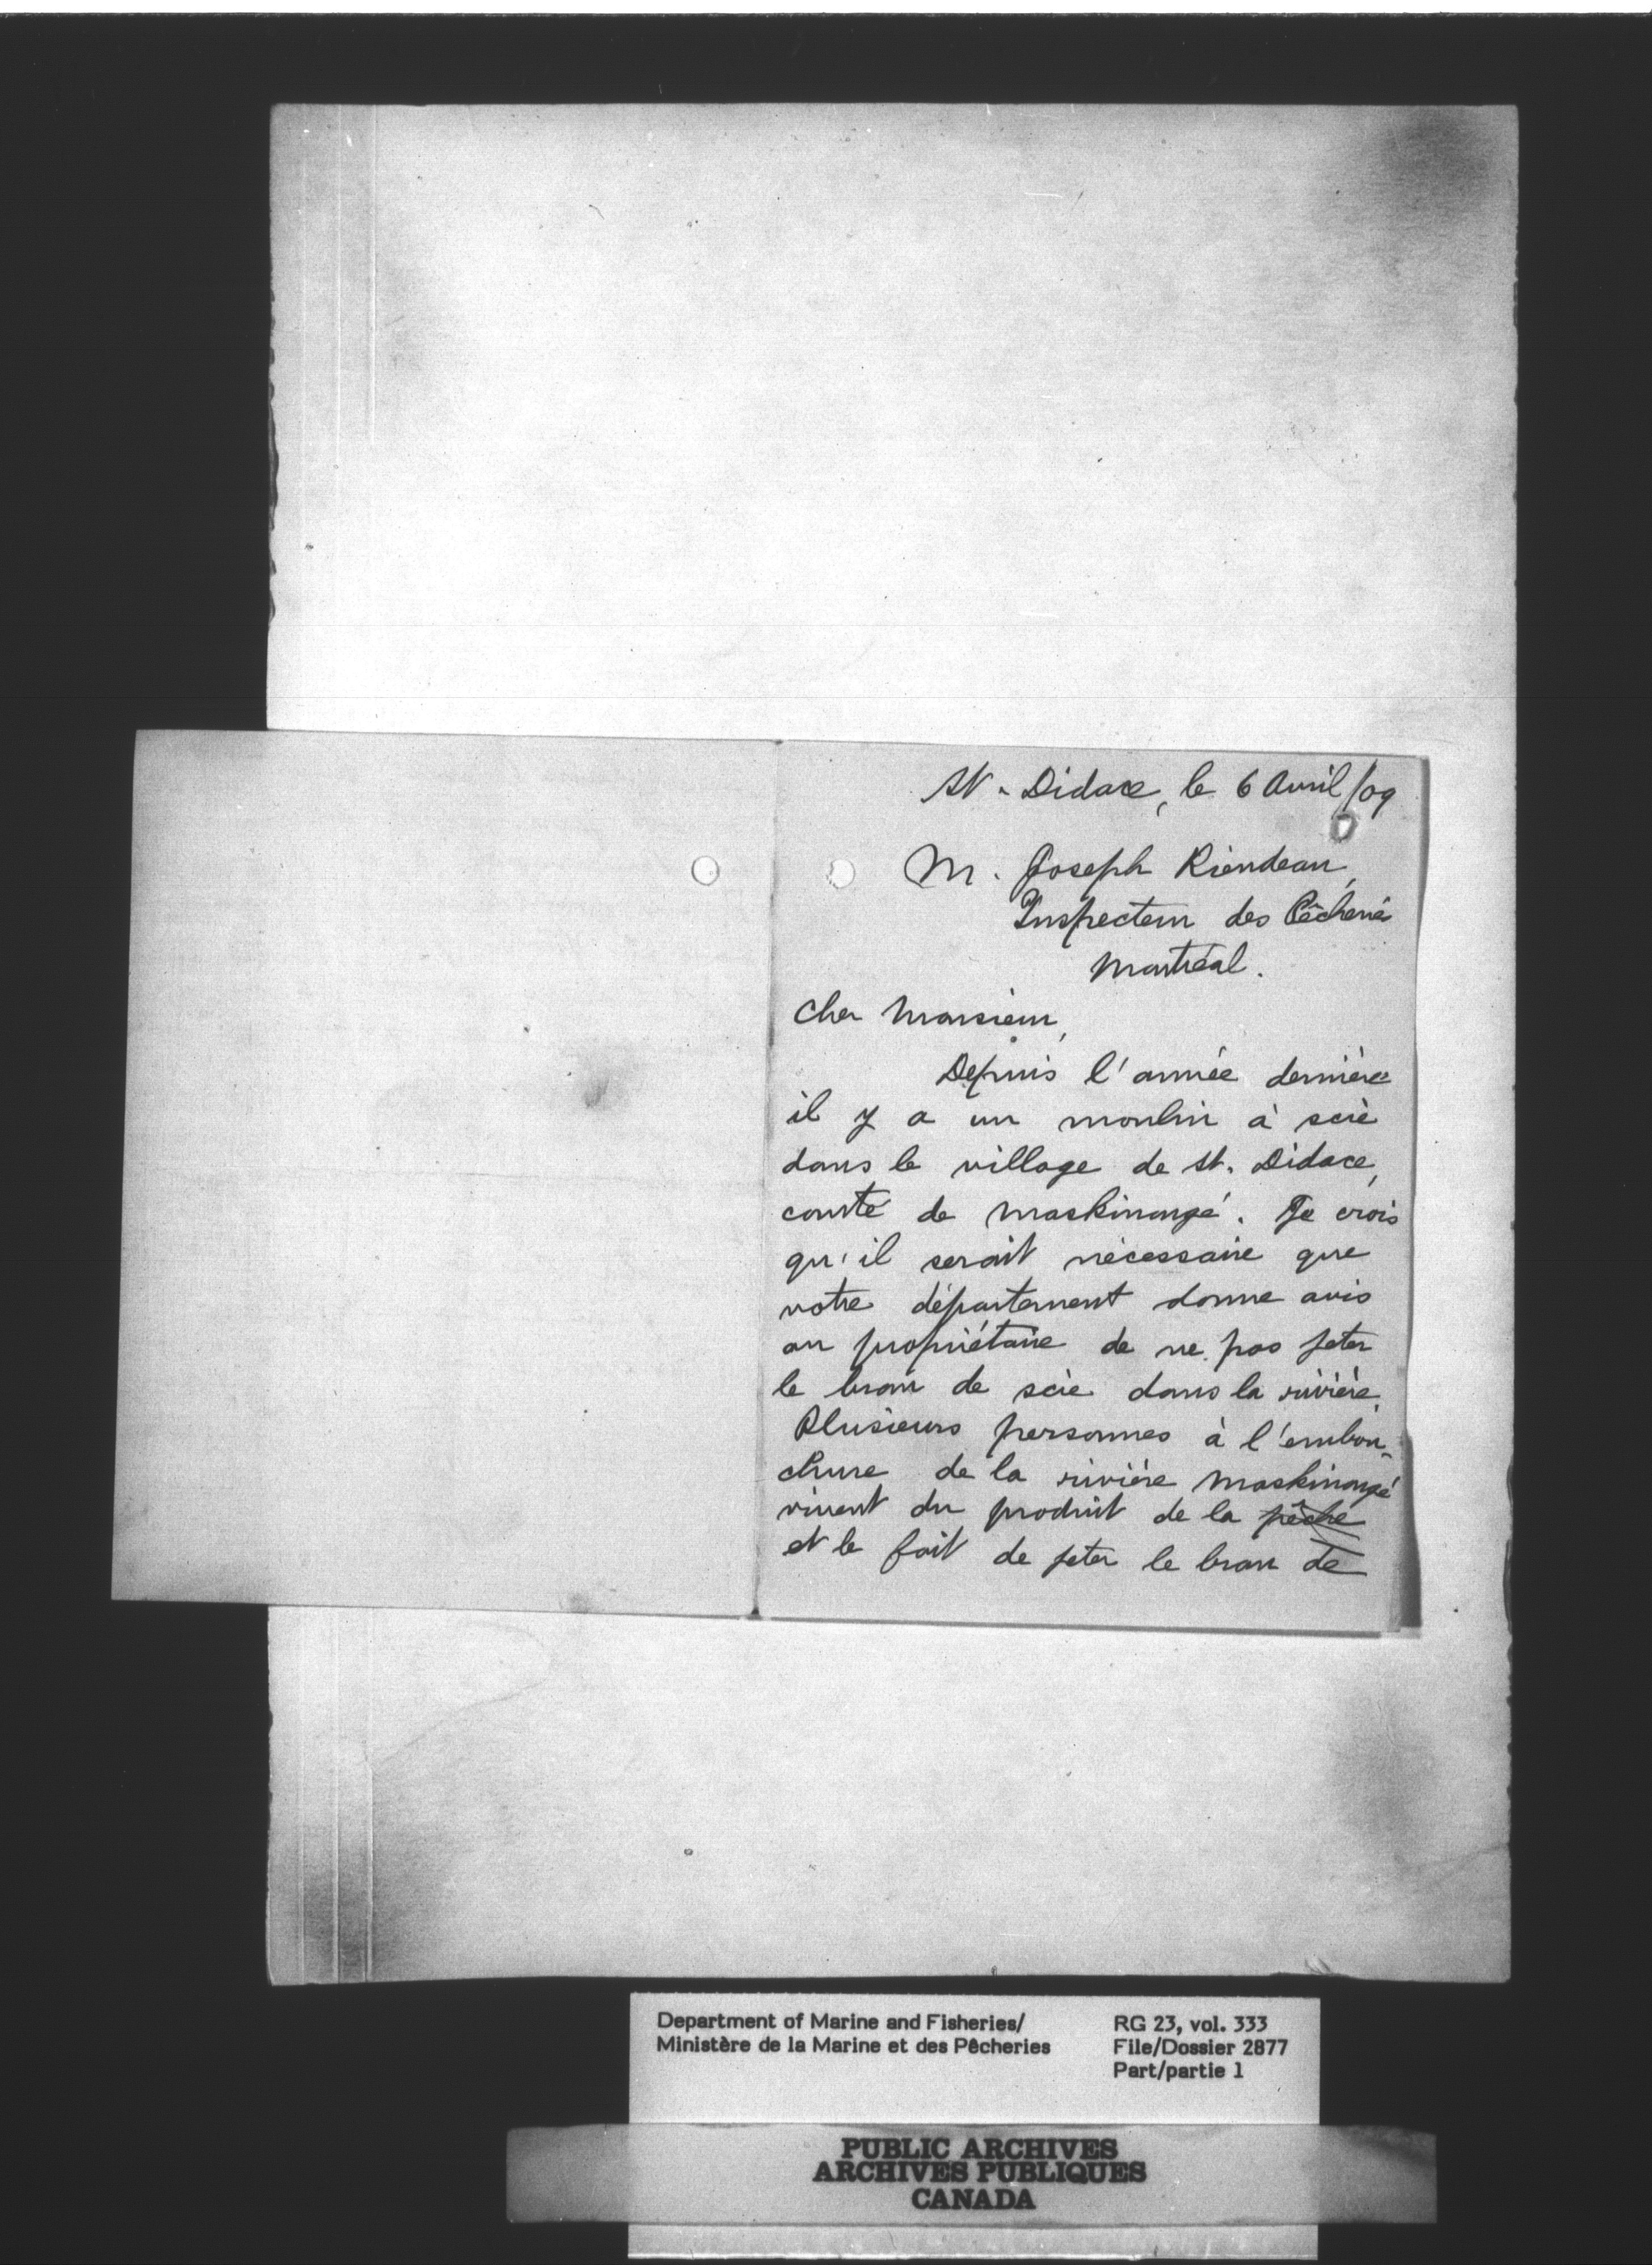 St. Didace, le 6 Avril /09
M. Joseph Riendeau,
Inspecteur des Pêcheries
Montréal.
Cher Monsieur,
Depuis l'année dernière
il y a un moulin à scie
dans le village de St. Didace,
comté de Maskinongé. Je crois
qu'il serait nécessaire que
votre département donne avis
au propriétaire de ne pas jeter
le bran de scie dans la rivière.
Plusieurs personnes à l'embou-
chure de la rivière Maskinongé
vivent du produit de la pêche
et le fait de jeter le bran de
Department of Marine and Fisheries/
Ministère de la Marine et des Pêcheries
RG 23, vol. 333
File/Dossier 2877
Part/partie 1
PUBLIC ARCHIVES
ARCHIVES PUBLIQUES
CANADA